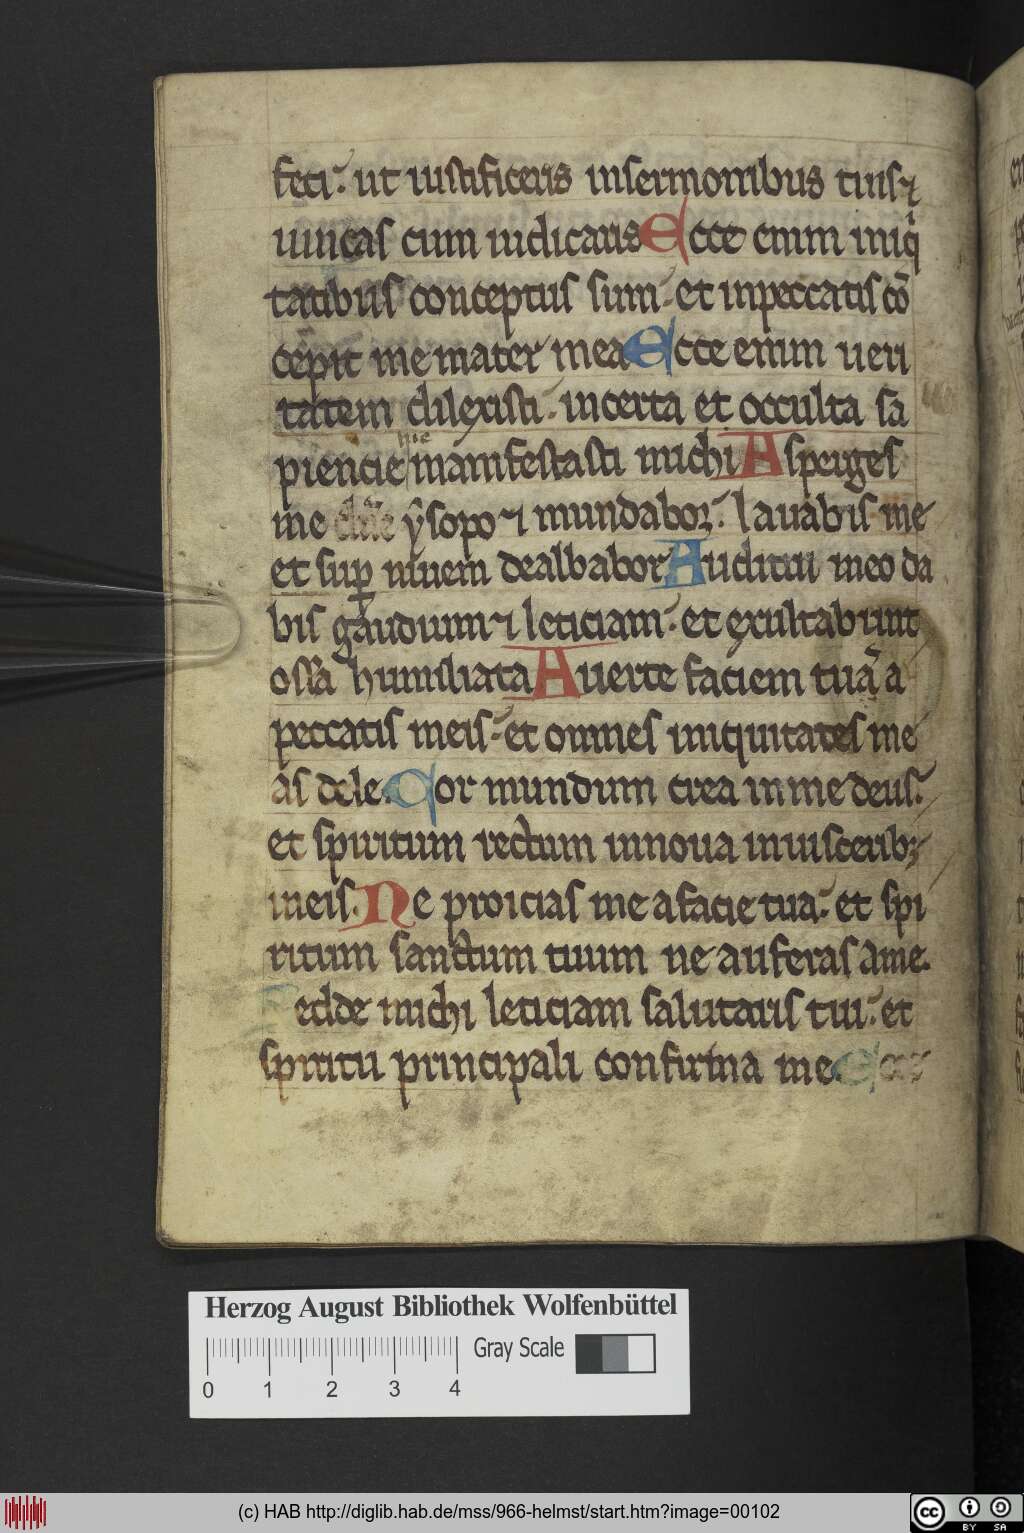 feci. ut iustificeris insermonibus tuis ⁊
uincas cum iudicaris Ecce enim iniq̇
tatibus conceptus sum. et inpeccatis cō
cepit me mater mea Ecce enim ueri
tatem dilexisti. incerta et occulta sa
piencie manifestasti michi Asperges
me dn̄e ẏsopo ⁊ mundaboꝝ. lauabis me
et suꝑ niuem dealbabor Auditui meo da
bis gaudium ⁊ leticiam. et exultabunt
ossa humiliata Auerte faciem tuā a
peccatis meis. et omnes iniquitates me
as dele. Cor mundum crea in me deus.
et spiritum rectum innoua inuisceribꝫ
meis. Ne proicias me afacie tua. et spi
ritum sanctum tuum ne auferas ame.
edde michi leticiam salutaris tui. et
spiritu principali confirma me.
Herzog August Bibliothek Wolfenbüttel
0 1 2 3 4 Gray Scale
(c) HAB http://diglib.hab.de/mss/966-helmst/start.htm?image=00102
cc BY SA